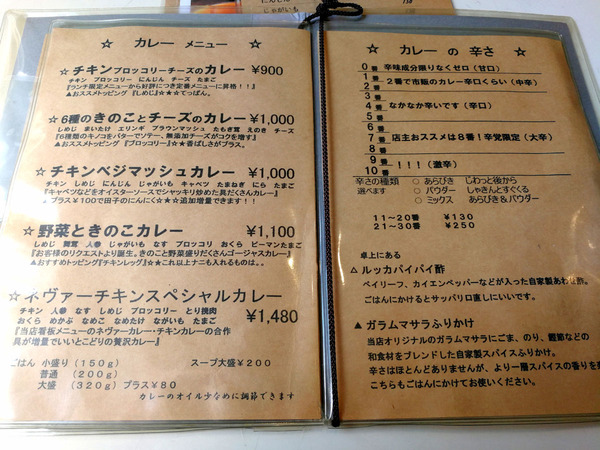 じゃがいも
☆ カレー メニュー ☆
☆ チキンブロッコリーチーズのカレー ¥900
チキン ブロッコリー にんじん チーズ たまご
『ランチ限定メニューから好評につき定番メニューに昇格!!』
▲おススメトッピング『しめじ』★★★でってぱん。
☆ 6種のきのことチーズのカレー ¥1,000
しめじ まいたけ エリンギ ブラウンマッシュ たもぎ茸 えのき チーズ
『6種類のキノコをバターでソテー、無添加チーズがコクを増す』
▲おススメトッピング『ブロッコリー』★★香ばしさがプラス。
☆ チキンベジマッシュカレー ¥1,000
チキン しめじ にんじん じゃがいも キャベツ たまねぎ にら たまご
『キャベツなどをオイスターソースでシャッキリ炒めた具だくさんカレー』
▲プラス¥100で田子のにんにく☆☆追加増量できます!!
☆ 野菜ときのこカレー ¥1,100
しめじ 舞茸 人参 じゃがいも なす ブロッコリ おくら ピーマン たまご
『お客様のリクエストより誕生。きのこと野菜盛りだくさんゴージャスカレー』
▲おすすめトッピング『チキンレッグ』★★これ以上ナニも入れるものは。。
☆ ネヴァーチキンスペシャルカレー
チキン 人参 なす しめじ ブロッコリー とり挽肉 ¥1,480
おくら めかぶ なめこ なめたけ ながいも たまご
『当店看板メニューのネヴァーカレー・チキンカレーの合作
具が増量でいいとこどりの贅沢カレー』
ごはん 小盛り(150g) スープ大盛¥200
普通 (200g)
大盛 (320g)プラス¥80
カレーのオイル少なめに調節できます
☆ カレー の 辛さ ☆
0番 辛味成分限りなくゼロ(甘口)
1番
2番 2番で市販のカレー辛口くらい(中辛)
3番
4番 なかなか辛いです(辛口)
5番
6番
7番 店主おススメは8番!辛党限定(大辛)
8番
9番 !!!(激辛)
10番
辛さの種類 ○ あらびき じわっと後から
選べます ○ パウダー しゃきんとすぐくる
○ ミックス あらびき&パウダー
11~20番 ¥130
21~30番 ¥250
卓上にある
△ ルッカパイパイ酢
ベイリーフ、カイエンペッパーなどが入った自家製あわせ酢。
ごはんにかけるとサッパリロ直しにいいです。
▲ ガラムマサラふりかけ
当店オリジナルのガラムマサラにごま、のり、鰹節などの
和食材をブレンドした自家製スパイスふりかけ。
辛さはほとんどありませんが、より一層スパイスの香りを
こちらもごはんにかけてお使いください。